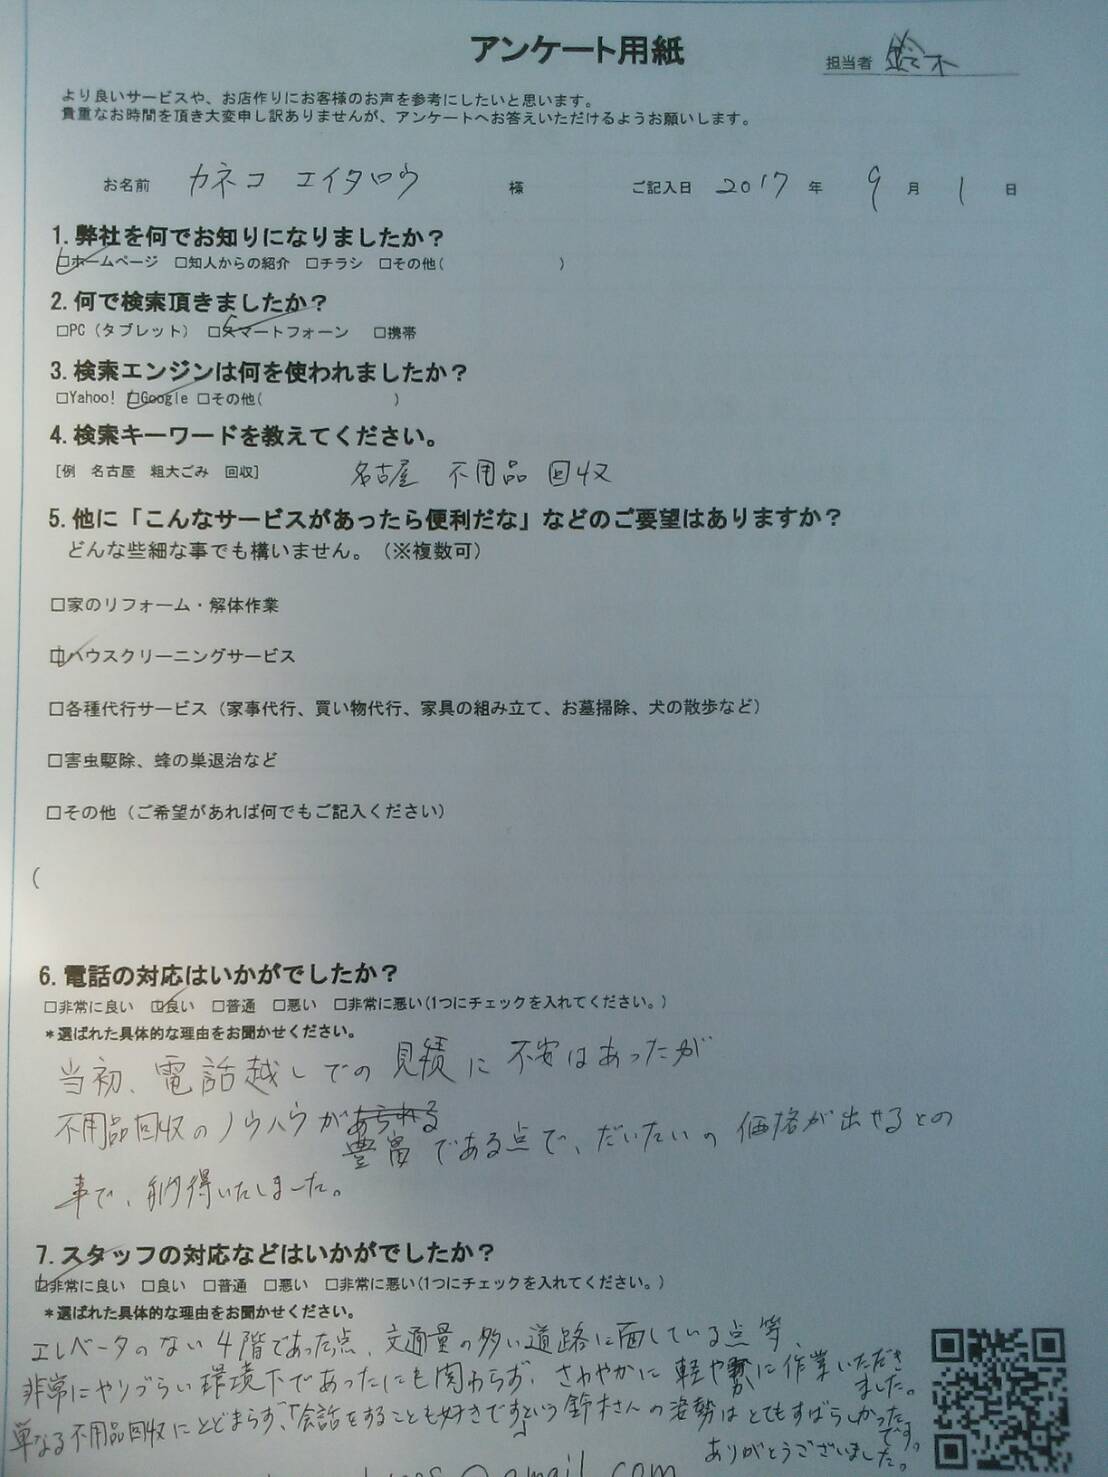 アンケート用紙
担当者 鈴木
より良いサービスや、お店作りにお客様のお声を参考にしたいと思います。
貴重なお時間を頂き大変申し訳ありませんが、アンケートへお答えいただけるようお願いします。
お名前 カネコ エイタロウ 様 ご記入日 2017 年 9 月 1 日
1. 弊社を何でお知りになりましたか？
□ホームページ □知人からの紹介 □チラシ □その他( )
2. 何で検索頂きましたか？
□PC（タブレット） □スマートフォーン □携帯
3. 検索エンジンは何を使われましたか？
□Yahoo! □Google □その他( )
4. 検索キーワードを教えてください。
[例 名古屋 粗大ごみ 回収] 名古屋 不用品 回収
5. 他に「こんなサービスがあったら便利だな」などのご要望はありますか？
どんな些細な事でも構いません。（※複数可）
□家のリフォーム・解体作業
□ハウスクリーニングサービス
□各種代行サービス（家事代行、買い物代行、家具の組み立て、お墓掃除、犬の散歩など）
□害虫駆除、蜂の巣退治など
□その他（ご希望があれば何でもご記入ください）
(
6. 電話の対応はいかがでしたか？
□非常に良い □良い □普通 □悪い □非常に悪い(1つにチェックを入れてください。)
＊選ばれた具体的な理由をお聞かせください。
当初、電話越しでの見積に不安はあったが
不用品回収のノウハウが豊富である点で、だいたいの価格が出せるとの
事で、納得いたしました。
7. スタッフの対応などはいかがでしたか？
□非常に良い □良い □普通 □悪い □非常に悪い(1つにチェックを入れてください。)
＊選ばれた具体的な理由をお聞かせください。
エレベータのない4階であった点、交通量の多い道路に面している点等、
非常にやりづらい環境下であったにも関わらず、さわやかに軽やかに作業いただき
ました。
単なる不用品回収にとどまらず、「会話をすることも好きです」という鈴木さんの姿勢はとてもすばらしかった
です。
ありがとうございました。
@gmail.com